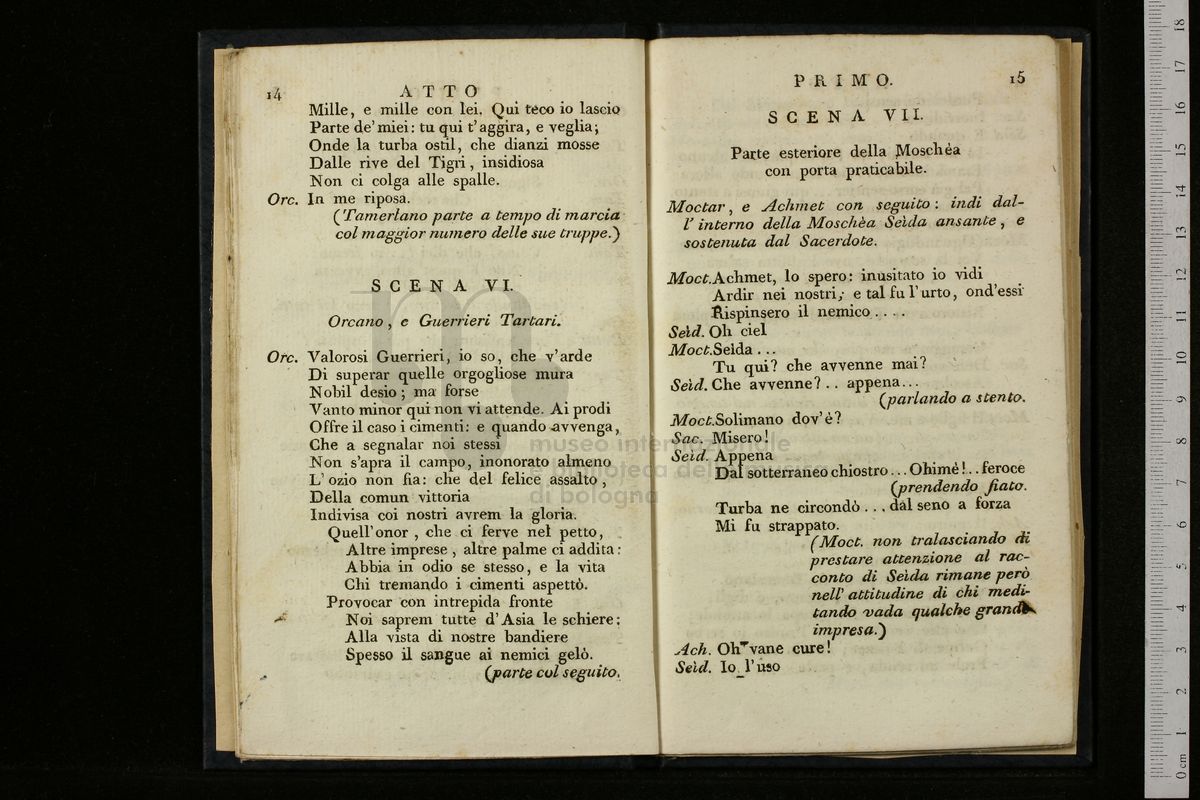 14
ATTO
Mille, e mille con lei. Qui teco io lascio
Parte de' miei: tu qui t'aggira, e veglia;
Onde la turba ostil, che dianzi mosse
Dalle rive del Tigri, insidiosa
Non ci colga alle spalle.
Orc. In me riposa.
(Tamerlano parte a tempo di marcia
col maggior numero delle sue truppe.)
SCENA VI.
Orcano, e Guerrieri Tartari.
Orc. Valorosi Guerrieri, io so, che v'arde
Di superar quelle orgogliose mura
Nobil desio; ma forse
Vanto minor qui non vi attende. Ai prodi
Offre il caso i cimenti: e quando avvenga,
Che a segnalar noi stessi
Non s'apra il campo, inonorato almeno
L'ozio non fia: che del felice assalto,
Della comun vittoria
Indivisa coi nostri avrem la gloria.
Quell'onor, che ci ferve nel petto,
Altre imprese, altre palme ci addita:
Abbia in odio se stesso, e la vita
Chi tremando i cimenti aspettò.
Provocar con intrepida fronte
Noi saprem tutte d'Asia le schiere:
Alla vista di nostre bandiere
Spesso il sangue ai nemici gelò.
(parte col seguito.
PRIMO.
15
SCENA VII.
Parte esteriore della Moschèa
con porta praticabile.
Moctar, e Achmet con seguito: indi dal-
l'interno della Moschèa Seìda ansante, e
sostenuta dal Sacerdote.
Moct. Achmet, lo spero: inusitato io vidi
Ardir nei nostri; e tal fu l'urto, ond'essi
Rispinsero il nemico....
Seìd. Oh ciel
Moct. Seìda...
Tu qui? che avvenne mai?
Seìd. Che avvenne?.. appena...
(parlando a stento.
Moct. Solimano dov'è?
Sac. Misero!
Seìd. Appena
Dal sotterraneo chiostro... Ohimè!.. feroce
(prendendo fiato.
Turba ne circondò... dal seno a forza
Mi fu strappato.
(Moct. non tralasciando di
prestare attenzione al rac-
conto di Seìda rimane però
nell'attitudine di chi medi-
tando vada qualche grande
impresa.)
Ach. Oh vane cure!
Seìd. Io l'uso
museo internazionale
e biblioteca della musica
di bologna
0 cm 1 2 3 4 5 6 7 8 9 10 11 12 13 14 15 16 17 18